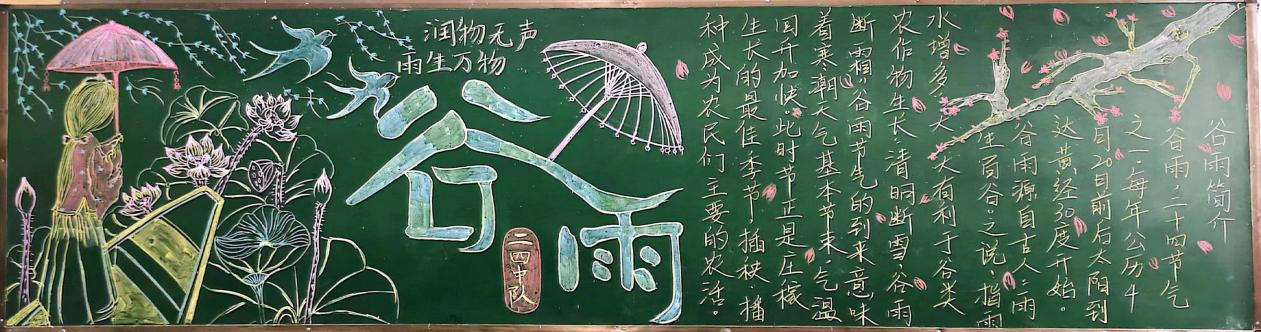 润物无声
雨生万物
谷雨
二四中队
谷雨简介
谷雨二十四节气
之一，每年公历4
月20日前后太阳到
达黄经30度开始。
谷雨源自古人“雨
生百谷”之说，指雨
水增多，大大有利于谷类
农作物生长，清明断雪谷雨
断霜，谷雨节气的到来意味
着寒潮天气基本节束，气温
回升加快，此时节正是庄稼
生长的最佳季节，插秧、播
种成为农民们主要的农活。